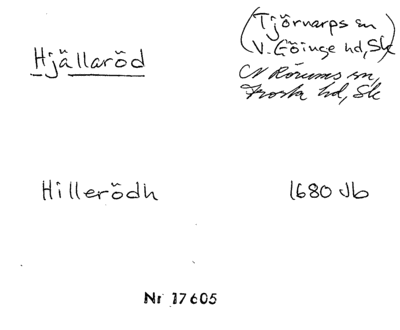 (Tjörnarps sn
Hjällaröd
V. Göinge hd, Sk)
N Rörums sn,
Frosta hd, Sk
Hillerödh 1680 Jb
Nr 17605